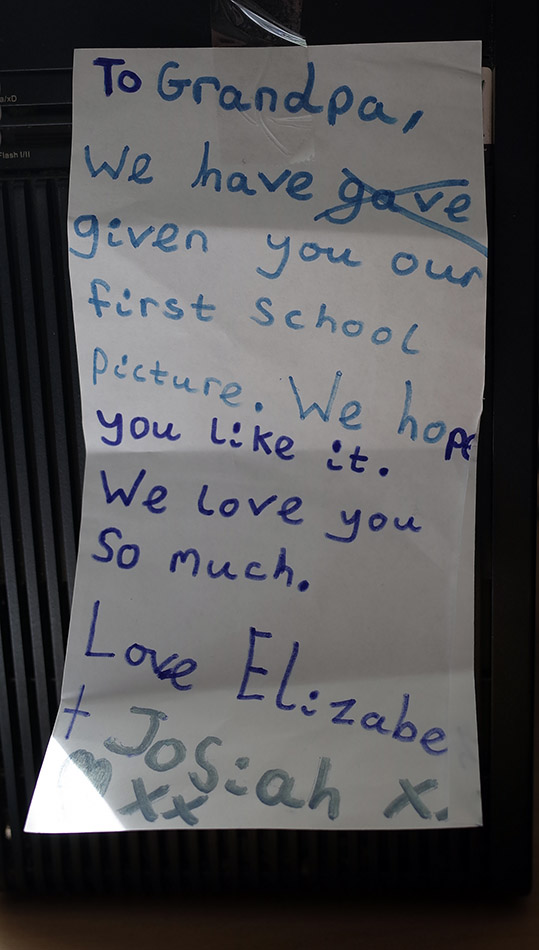 a/xD
Flash I/II
To Grandpa,
We have gave
given you our
first school
picture. We hope
you like it.
We love you
So much.
Love Elizabe
+ Josiah x.
xx